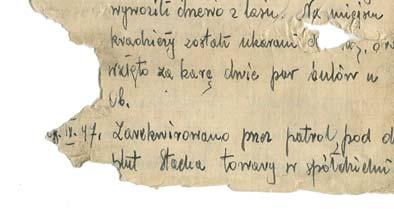 wywozili drzewo z lasu. Na miejscu
kradzieży zostali ukarani
wzięto za karę dwie par butów u
Ob.
IV. 47. Zarekwirowano przez patrol pod d
plut Stacha towary w spółdzielni